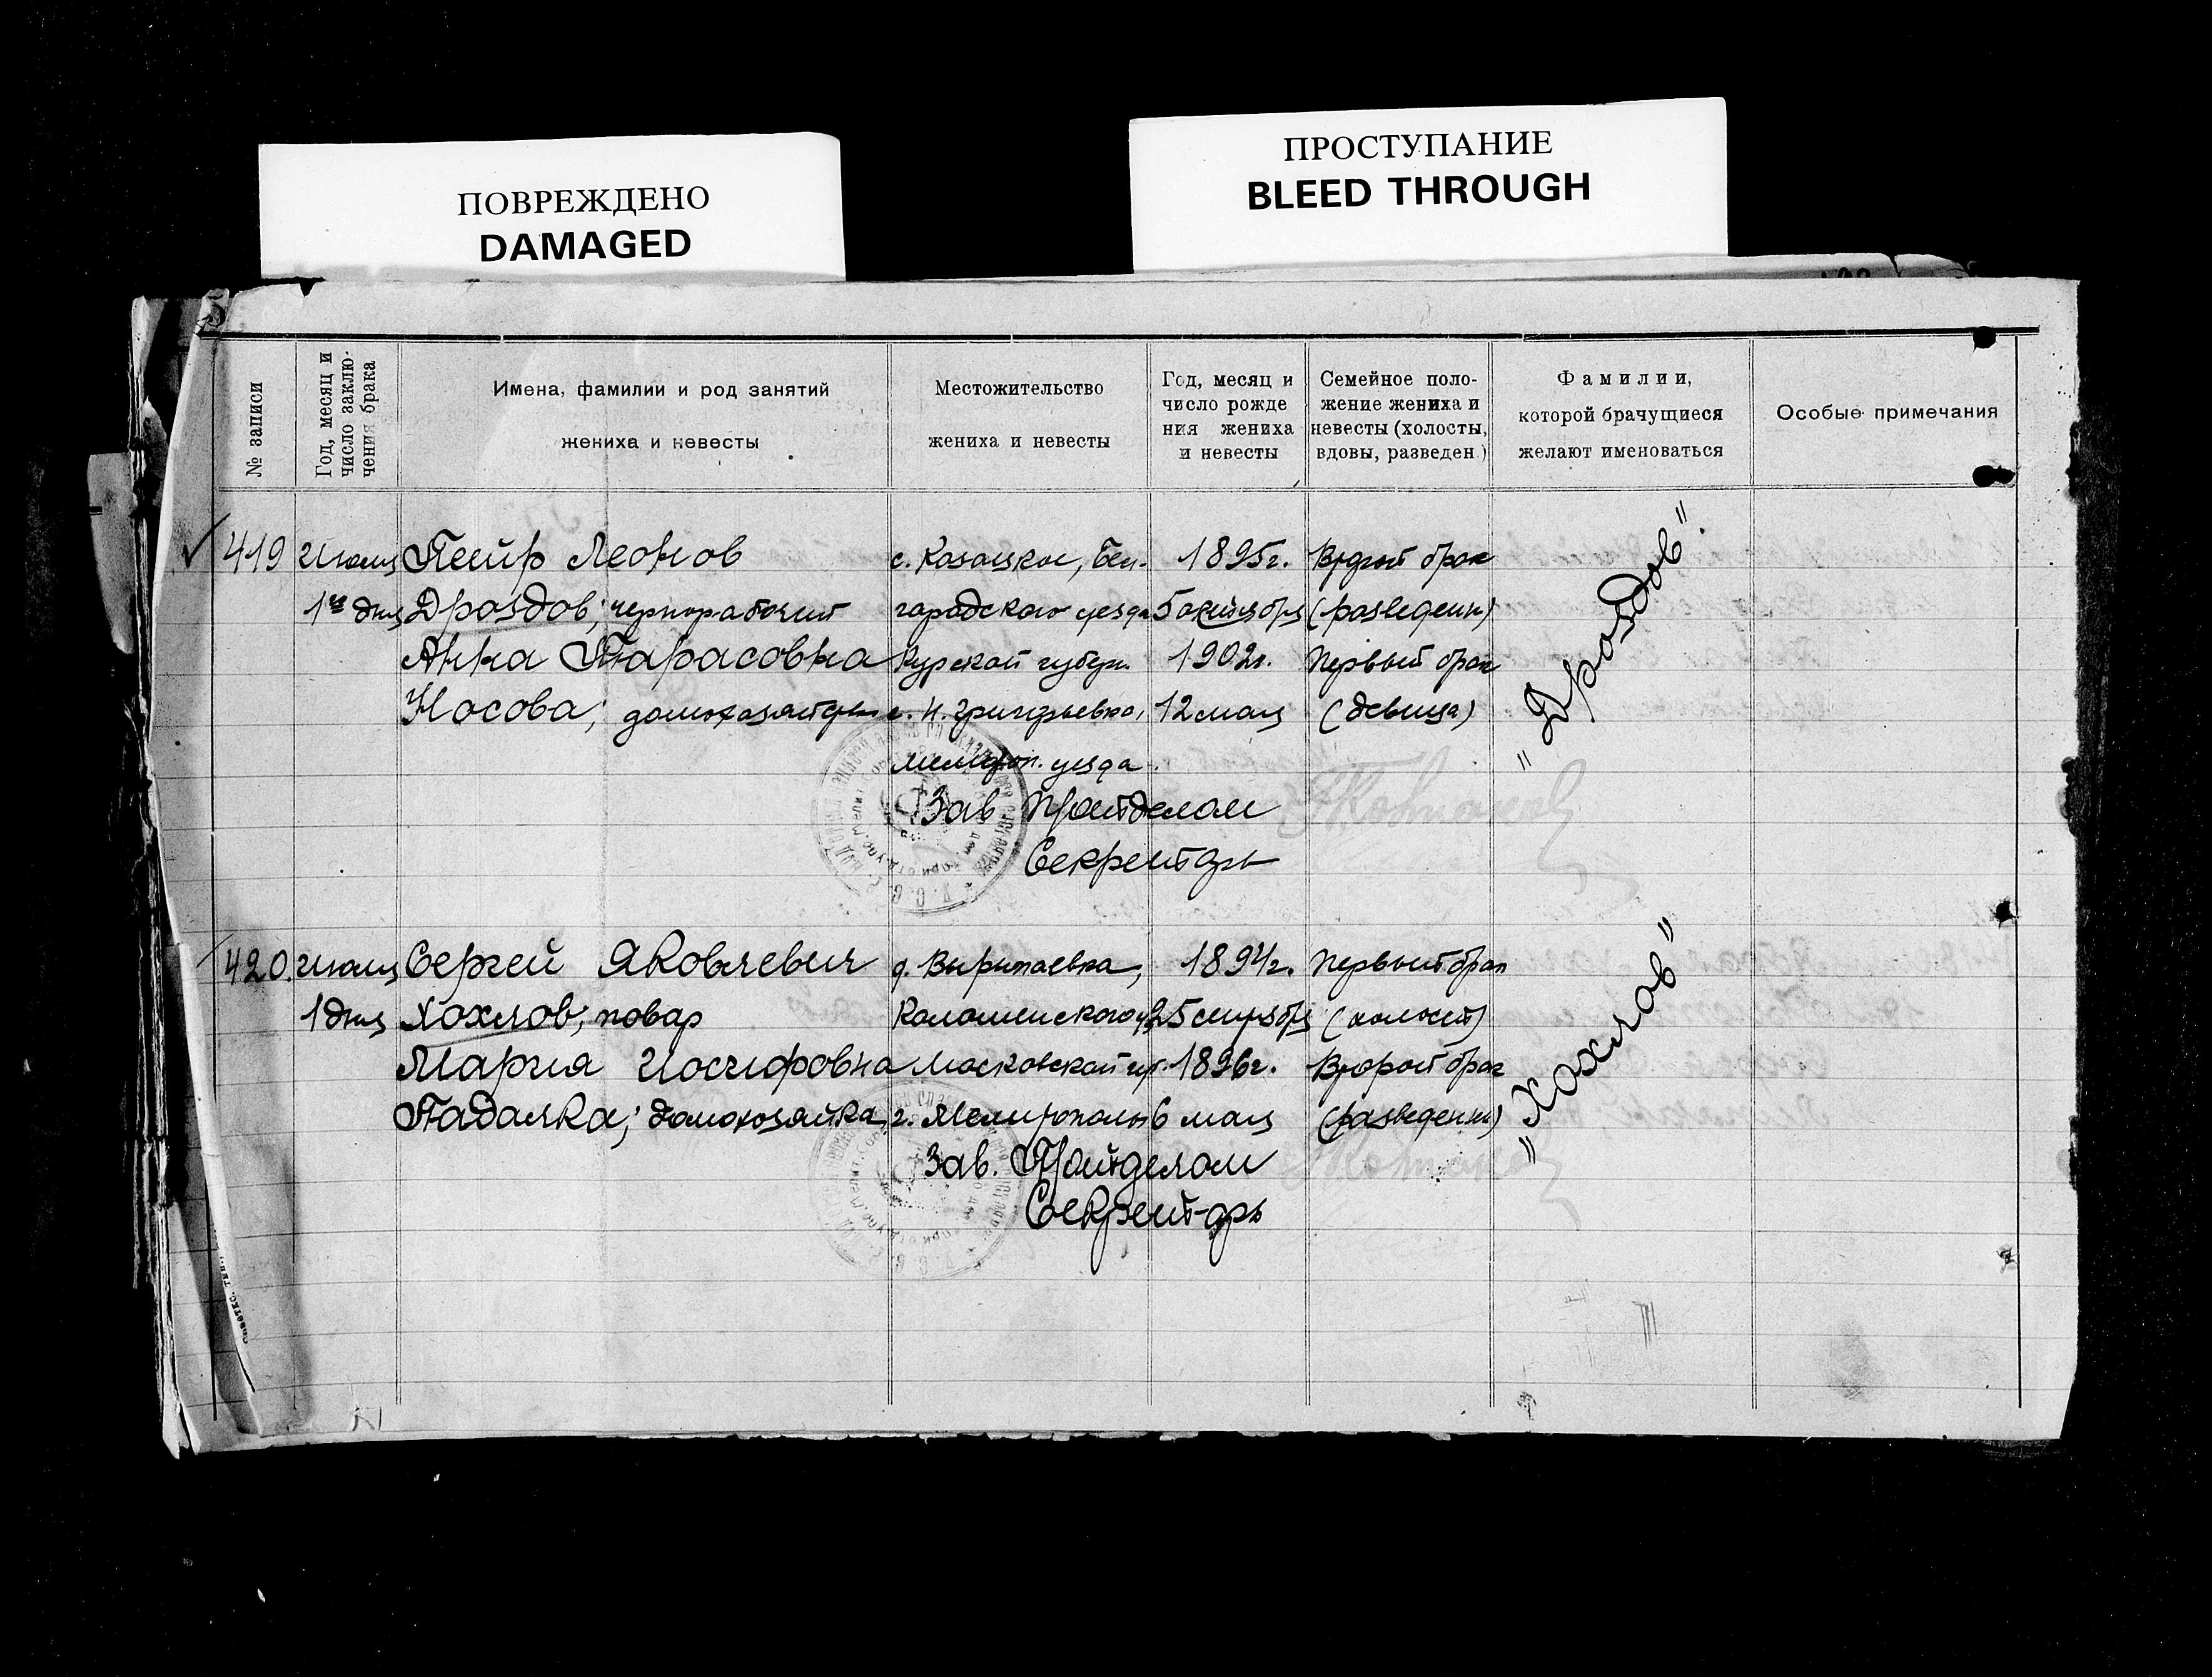 ПОВРЕЖДЕНО
DAMAGED
ПРОСТУПАНИЕ
BLEED THROUGH
№ записи
Год, месяц и
число заклю-
чения брака
Имена, фамилии и род занятий
жениха и невесты
Местожительство
жениха и невесты
Год, месяц и
число рожде
ния жениха
и невесты
Семейное поло-
жение жениха и
невесты (холосты,
вдовы, разведен.)
Фамилии,
которой брачущиеся
желают именоваться
Особые примечания
419 Июля Петр Леонов с. Казацкое, Бел- 1895г. Второй брак
1го дня Дроздов; чернорабочий городского уезда 5 октября (разведен)
Анна Тарасовна Курской губерн. 1902г. Первый брак
Носова; домохозяйка с. Н. Григорьевка, 12 мая (девица)
Мелитоп. уезда.
"Дроздов".
Зав Протделом
Секретарь
420. Июля Сергей Яковлевич д. Вырыпаевка, 1894г. Первый брак
1 дня Хохлов; повар Коломенского у. 25 сентября (холост)
Мария Иосифовна Московской гу. 1896г. Второй брак
Падалка; домохозяйка г. Мелитополь 6 мая (разведен)
"Хохлов"
Зав. Протделом
Секретарь